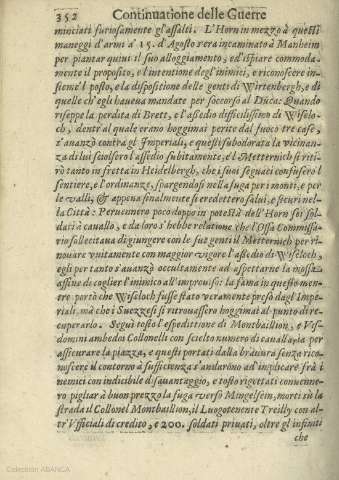 352 Continuatione delle Guerre
minciati furiosamente gl'assalti. L'Horn in mezzo à questi
maneggi d'armi a' 15. d'Agosto s'era incaminato à Manheim
per piantar quiui il suo alloggiamento, ed ispiare commoda-
mente il proposito, e l'intentione degl'inimici, e riconoscere in-
siem e'l posto, e la dispositione delle genti di Wirtenbergh, e di
quelle ch'egli haueua mandate per soccorso al Duca: Quando
riseppe la perdita di Brett, e l'assedio difficilissimo di Wiselo-
ch, dentr'al quale erano hoggimai perite dal fuoco tre case,
s'auanzò contra gl'Imperiali, e questi subodorata la vicinan-
za di lui sciolsero l'assedio subitamente, e'l Metternich si riti-
rò tanto in fretta in Heidelbergh, che i suoi seguaci confusero'l
sentiere, e l'ordinanze, spargendosi nella fuga per i monti, e per
le valli, & appena finalmente si credettero salui, e sicuri nel-
la Città: Peruennero poco doppo in potestà dell'Horn soi sol-
dati à cauallo, e da loro s'hebbe relatione che l'Ossa Commissa-
rio sollecitaua di giungere con le sue genti il Metternich per ri-
nouare vnitamente con maggior vigore l'assedio di Wiseloch,
egli per tanto s'auanzò occultamente ad aspettarne la mossa
assine di coglier l'inimico all'improuiso: la fama in questo men-
tre portò che Wiseloch fusse stato veramente preso dagl'Impe-
riali, mà che i Suezzesi si ritrouassero hoggimai al punto di re-
cuperarlo. Seguì tosto l'espeditione di Montbaillion, e Vis-
domini ambedui Collonelli con scielto numero di caualleria per
assicurare la piazza, e questi portati dalla brauura senza rico-
noscere il contorno à sufficienza s'andarono ad'implicare frà i
nemici con indicibile disauantaggio, e tosto rigettati conuenne-
ro pigliar à buon prezzo la fuga verso Mingelsein, morti sù la
strada il Collonel Montbaillion, il Luogotenente Treilly con al-
tr'Vfficiali di credito, e 200. soldati priuati, oltre gl'infiniti
che
Colección ABANCA